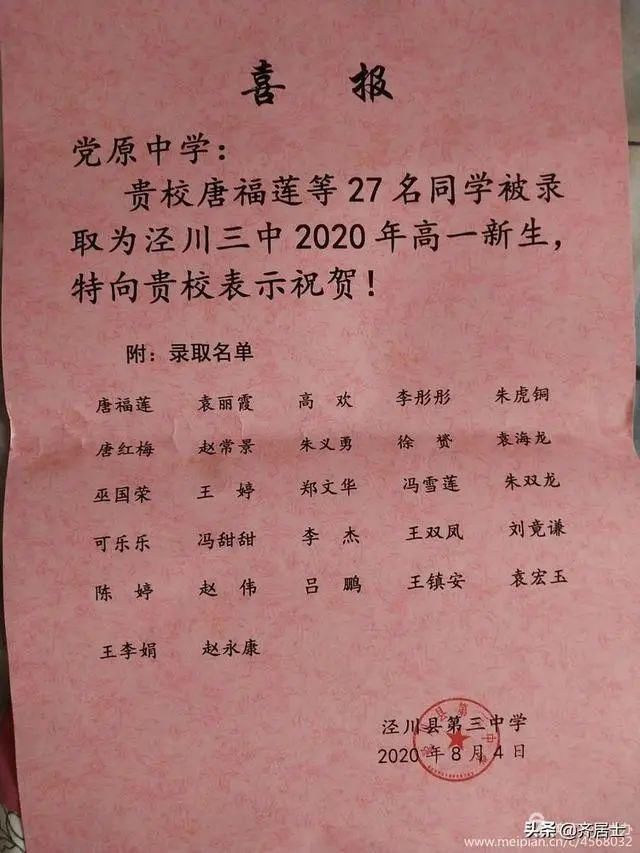 喜 报
党原中学：
贵校唐福莲等27名同学被录
取为泾川三中2020年高一新生，
特向贵校表示祝贺！
附：录取名单
唐福莲 袁丽霞 高 欢 李彤彤 朱虎铜
唐红梅 赵常景 朱义勇 徐 赟 袁海龙
巫国荣 王 婷 郑文华 冯雪莲 朱双龙
可乐乐 冯甜甜 李 杰 王双凤 刘竟谦
陈 婷 赵 伟 吕 鹏 王镇安 袁宏玉
王李娟 赵永康
泾川县第三中学
2020年8月4日
头条 @齐居士
www.meipian.cn/c/4568032